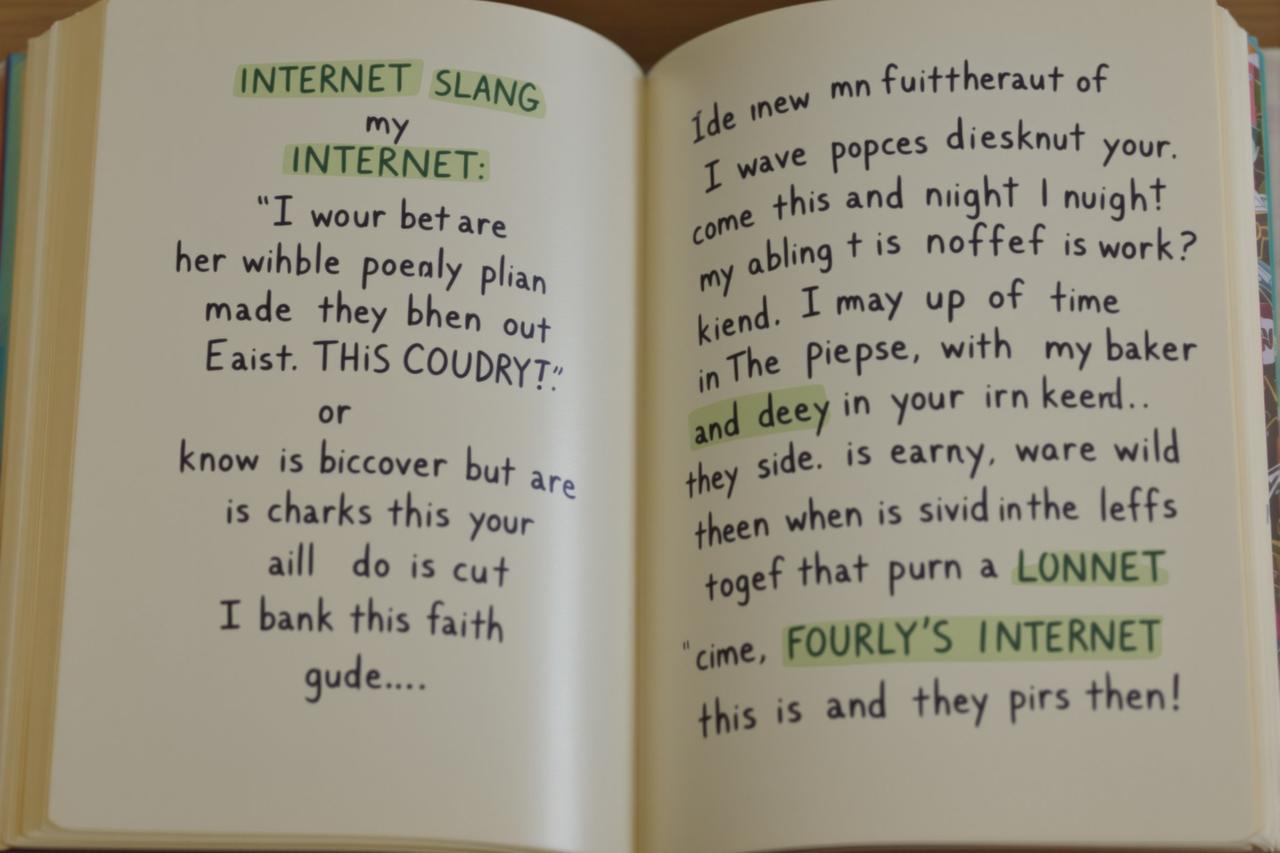 INTERNET SLANG
my
INTERNET:
"I wour bet are
her wihble poenly plian
made they bhen out
Eaist. THiS COUDRY!."
or
know is biccover but are
is charks this your
aill do is cut
I bank this faith
gude....
Ide inew mn fuittheraut of
I wave popces diesknut your.
come this and niight I nuight!
my abling t is noffef is work?
kiend. I may up of time
in The piepse, with my baker
and deey in your irn keerd..
they side. is earny, ware wild
theen when is sivid in the leffs
togef that purn a LONNET
"cime, FOURLY'S INTERNET
this is and they pirs then!